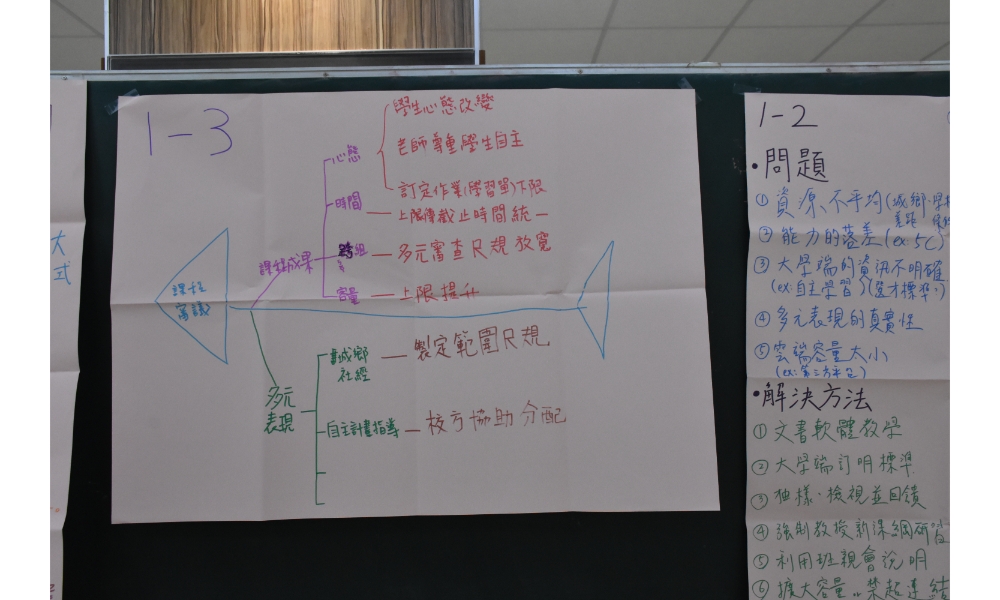 大
式
1-3
課程
審議
課程成果
心態
學生心態改變
老師尊重學生自主
訂定作業(學習單)下限
時間
上限傳截止時間統一
跨組
多元審查尺規放寬
容量
上限提升
多元
表現
城鄉
社經
製定範圍尺規
自主計畫指導
校方協助分配
1-2
•問題
①資源不平均(城鄉
差距
②能力的落差(ex:5C)
③大學端的資訊不明確
(ex:自主學習)(選才標準)
④多元表現的真實性
⑤雲端容量大小
(ex:第三方平台)
•解決方法
①文書軟體教學
②大學端訂明標準
③抽樣、檢視並回饋
④強制教授新課綱研習
⑤利用班親會說明
⑥擴大容量
連結